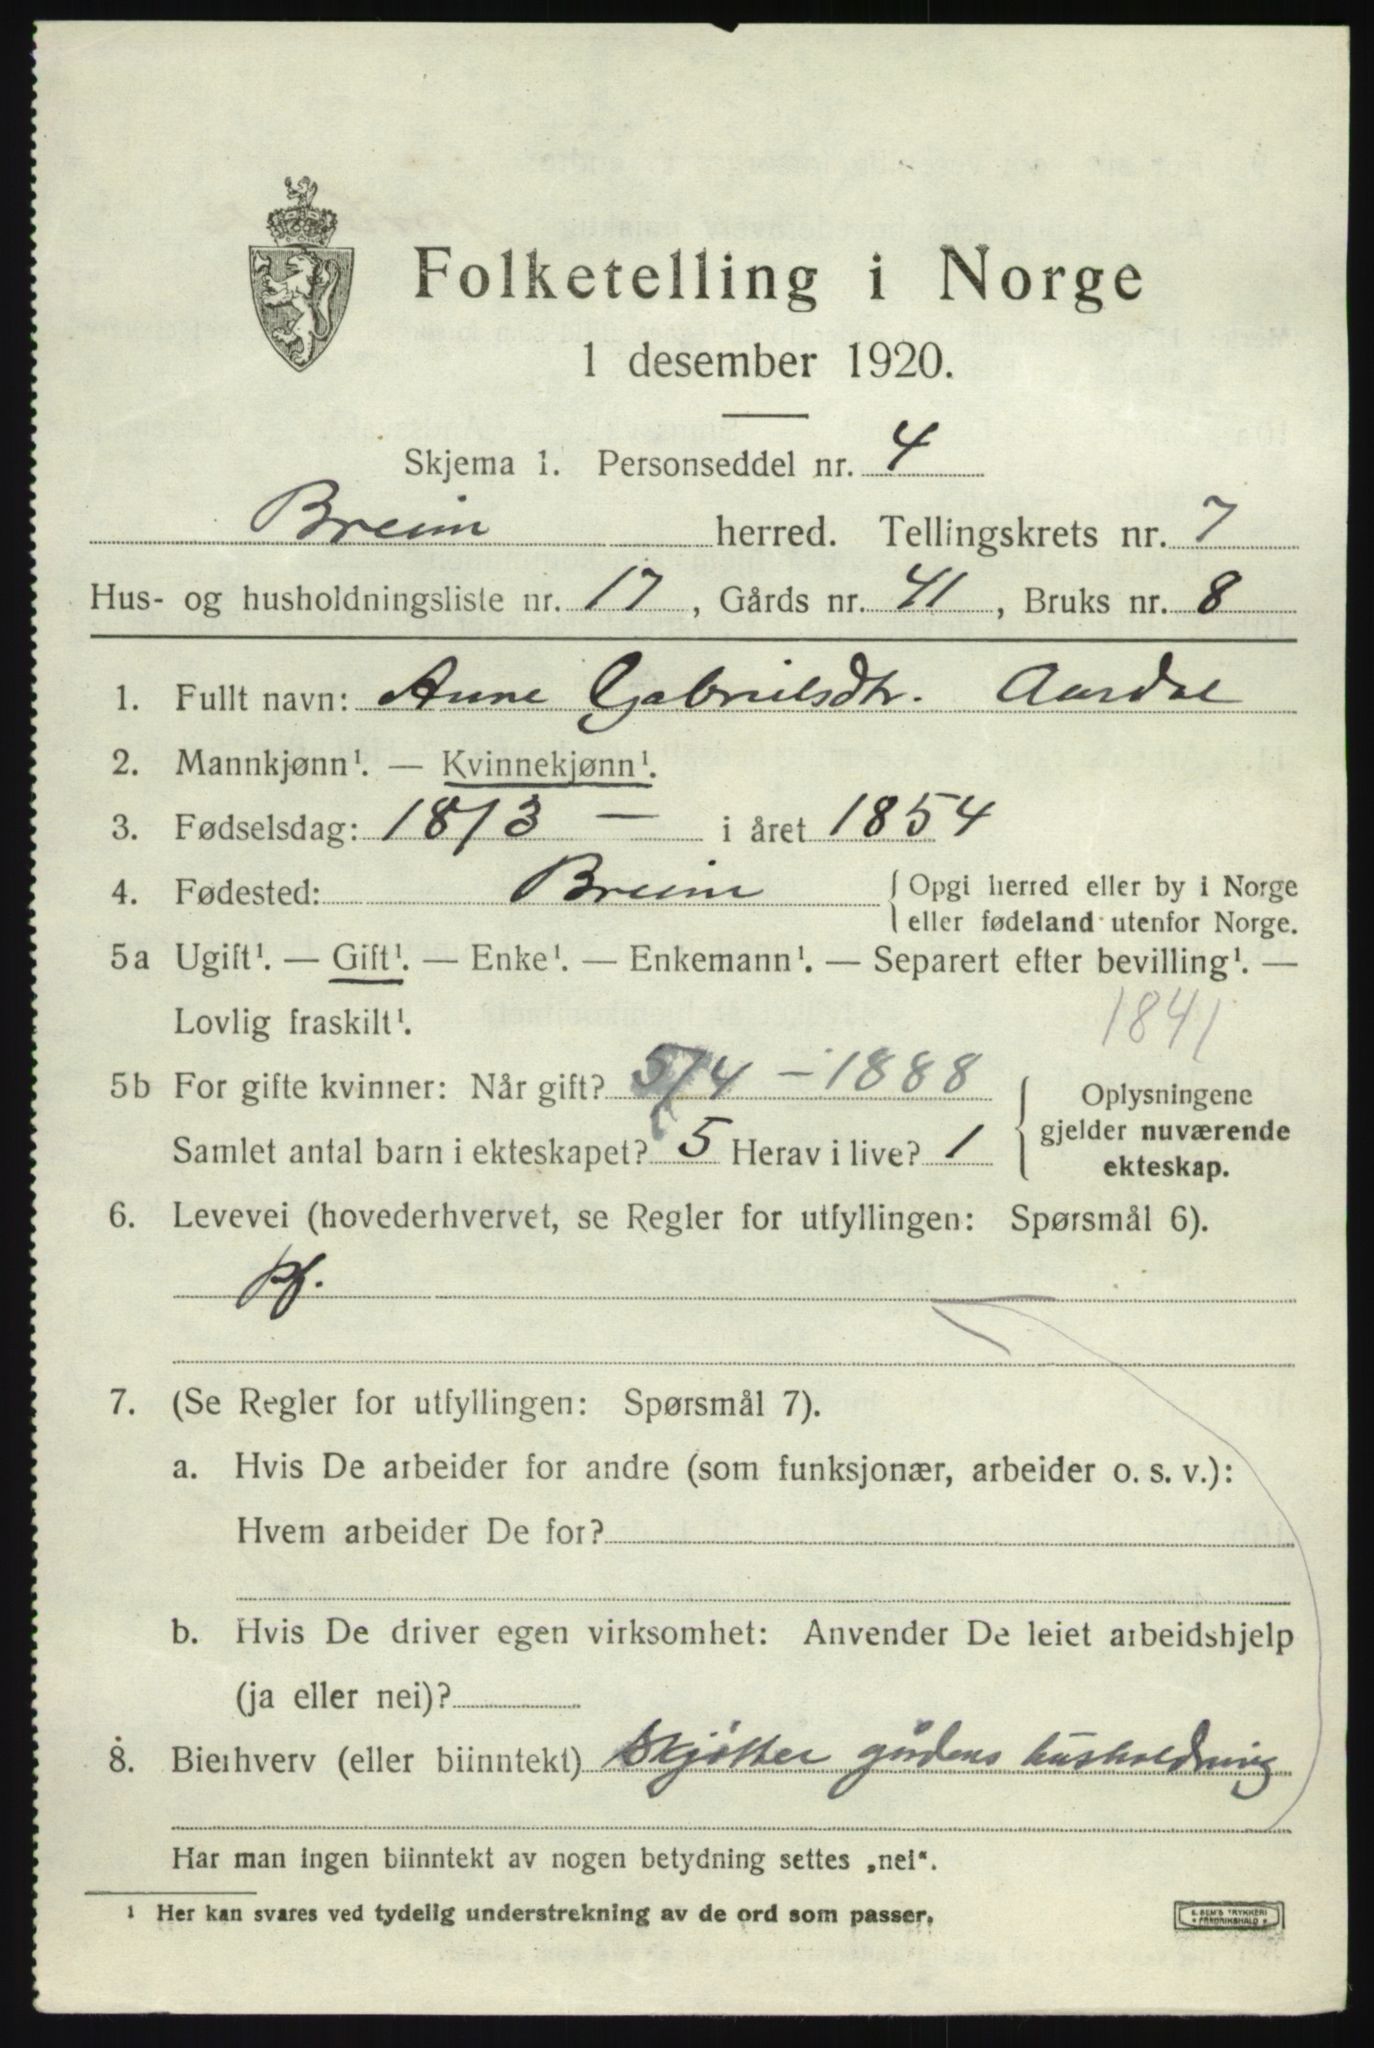 Folketelling i Norge
1 desember 1920.
Skjema 1. Personseddel nr. 4
Breim herred. Tellingskrets nr. 7
Hus- og husholdningsliste nr. 17, Gårds nr. 41, Bruks nr. 8
1. Fullt navn: Anne Gabrielsdtr. Aardal
2. Mannkjønn¹. — Kvinnekjønn¹.
3. Fødselsdag: 18/3 — i året 1854
4. Fødested: Breim {Opgi herred eller by i Norge
eller fødeland utenfor Norge.
5a Ugift¹. — Gift¹. — Enke¹. — Enkemann¹. — Separert efter bevilling¹. —
Lovlig fraskilt¹.
1841
5b For gifte kvinner: Når gift? 5/4 - 1888
Samlet antal barn i ekteskapet? 5 Herav i live? 1
{ Oplysningene
gjelder nuværende
ekteskap.
6. Levevei (hovederhvervet, se Regler for utfyllingen: Spørsmål 6).
pf.
7. (Se Regler for utfyllingen: Spørsmål 7).
a. Hvis De arbeider for andre (som funksjonær, arbeider o. s. v.):
Hvem arbeider De for?
b. Hvis De driver egen virksomhet: Anvender De leiet arbeidshjelp
(ja eller nei)?
8. Bierhverv (eller biinntekt) Skjøtter gårdens husholdning
Har man ingen biinntekt av nogen betydning settes „nei“.
¹ Her kan svares ved tydelig understrekning av de ord som passer.
E. SEM'S TRYKKERI
FREDRIKSHALD